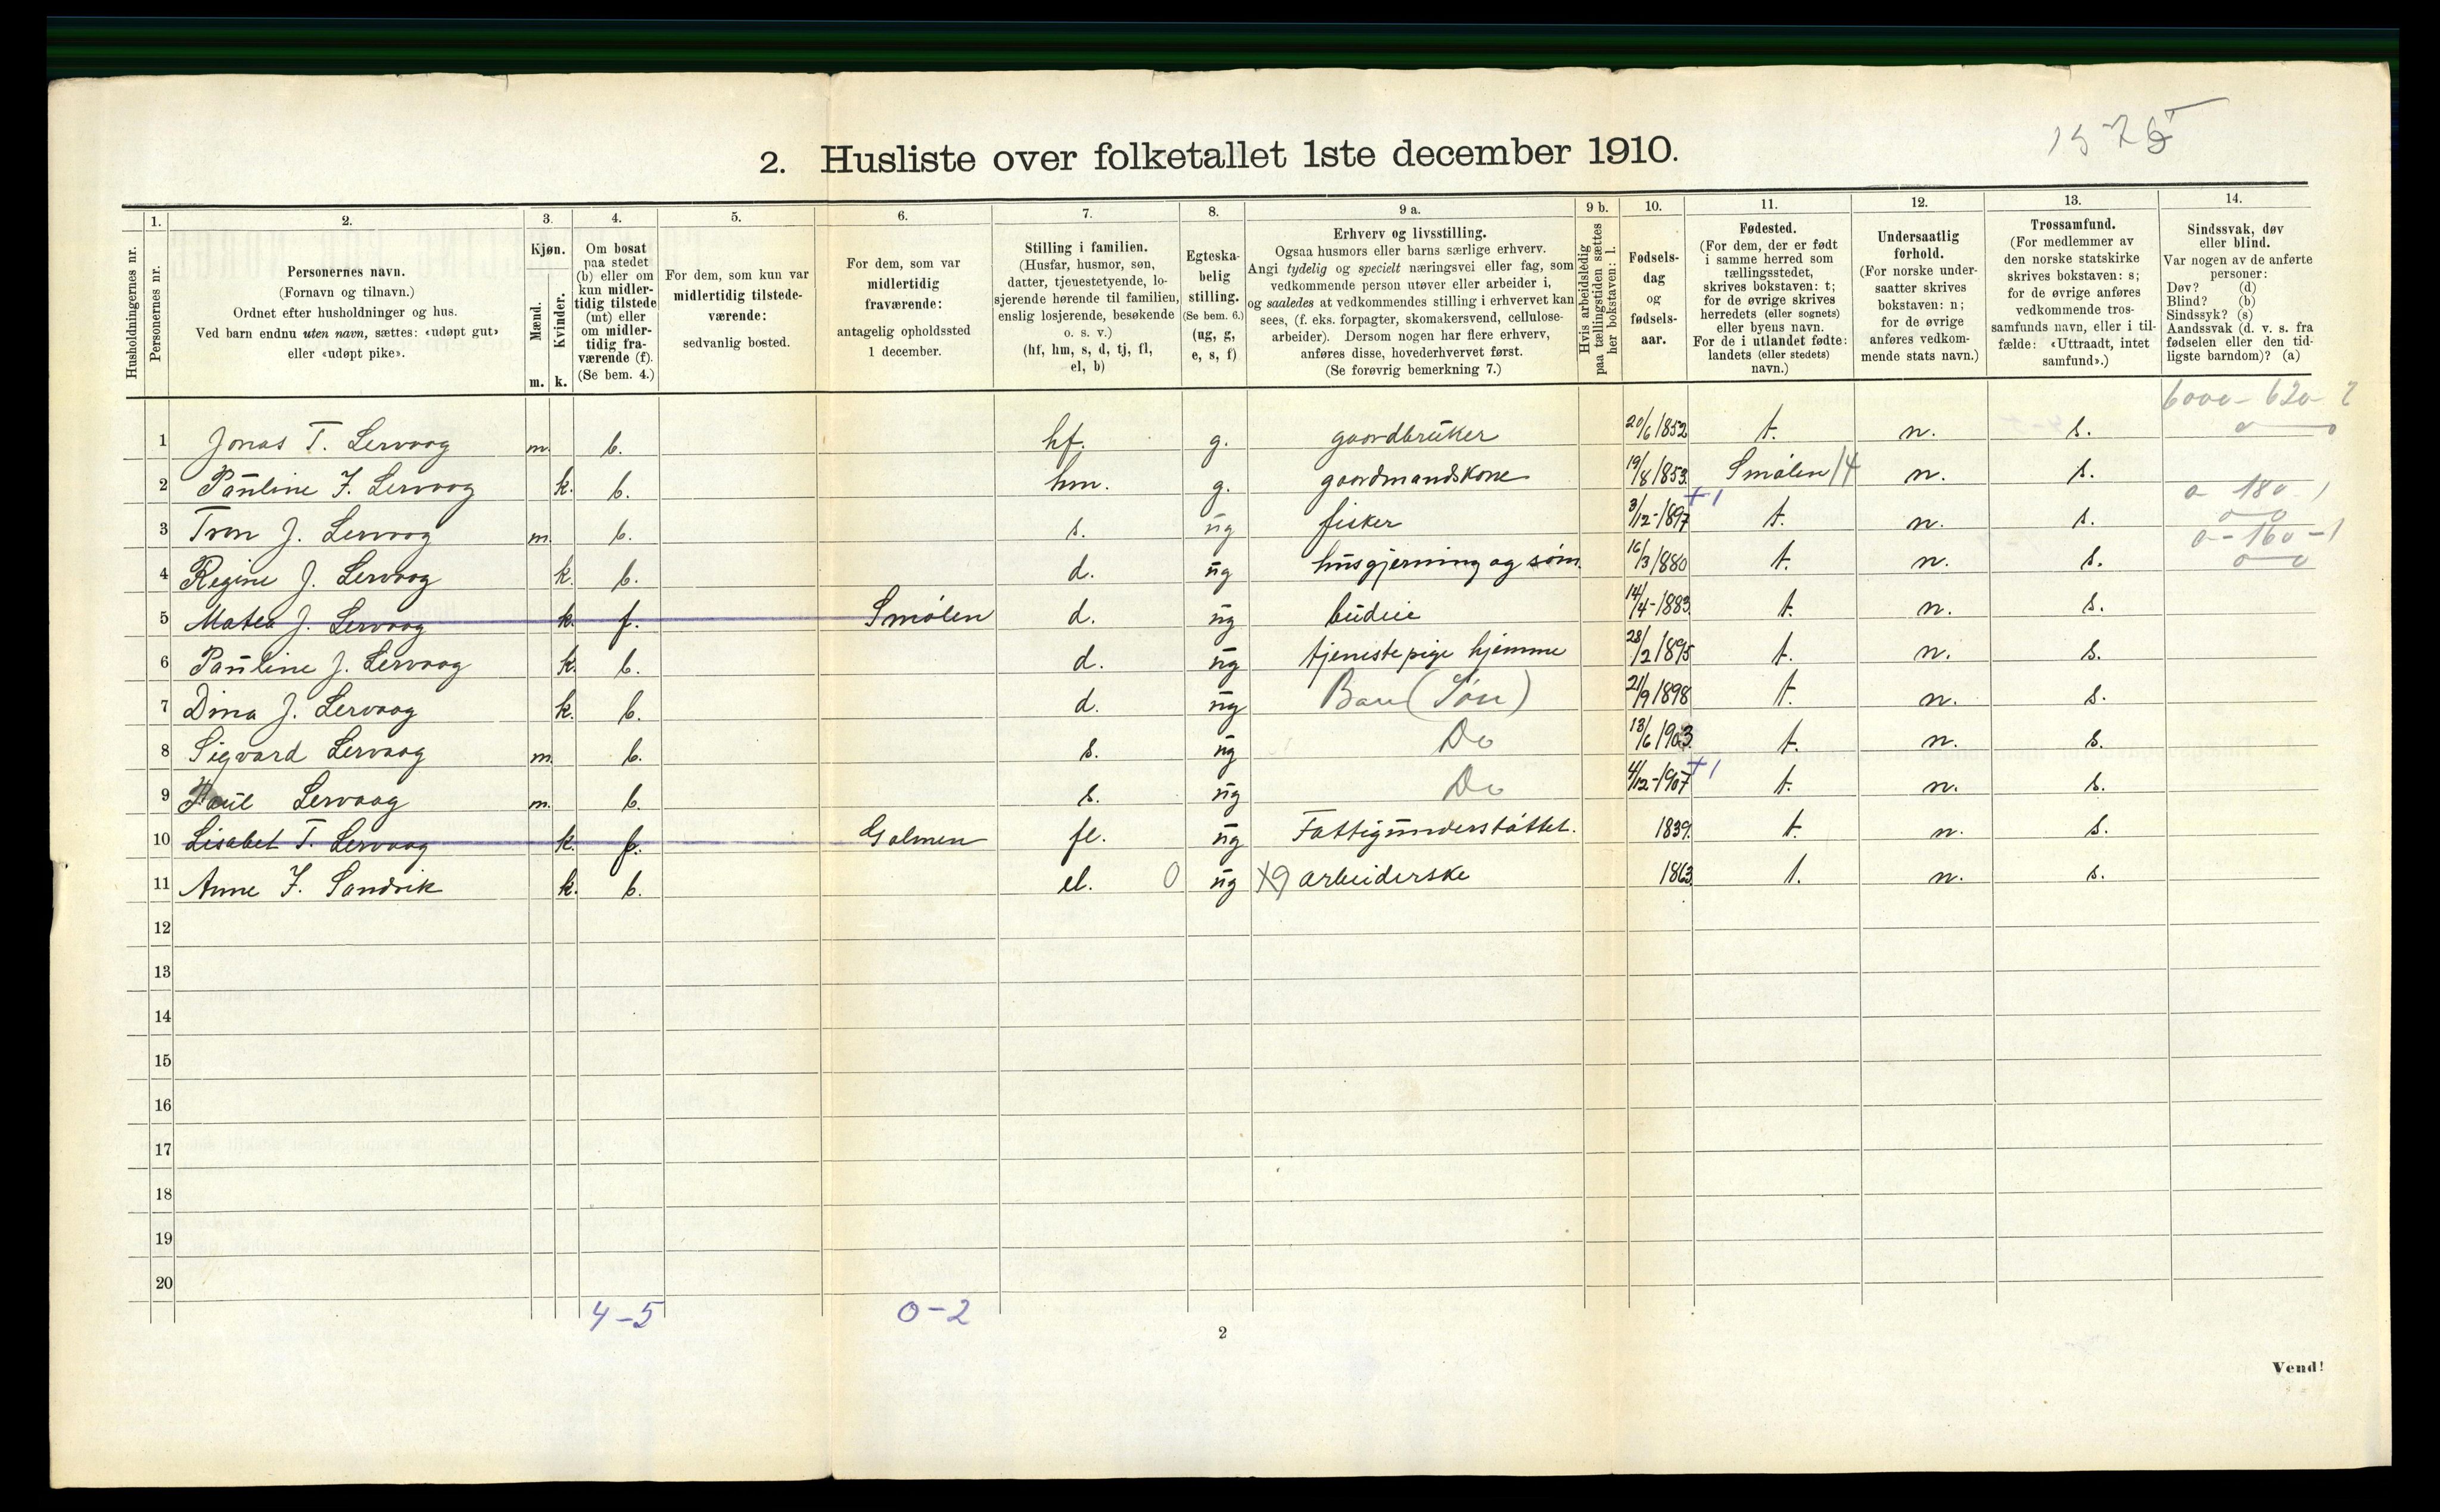 1575
2. Husliste over folketallet 1ste december 1910.
Husholdningernes nr.
1. Personernes nr.
2. Personernes navn.
(Fornavn og tilnavn.)
Ordnet efter husholdninger og hus.
Ved barn endnu uten navn, sættes: «udøpt gut»
eller «udøpt pike».
3. Kjøn.
Mænd. Kvinder.
m. k.
4. Om bosat
paa stedet
(b) eller om
kun midler-
tidig tilstede
(mt) eller
om midler-
tidig fra-
værende (f).
(Se bem. 4.)
5. For dem, som kun var
midlertidig tilstede-
værende:
sedvanlig bosted.
6. For dem, som var
midlertidig
fraværende:
antagelig opholdssted
1 december.
7. Stilling i familien.
(Husfar, husmor, søn,
datter, tjenestetyende, lo-
sjerende hørende til familien,
enslig losjerende, besøkende
o. s. v.)
(hf, hm, s, d, tj, fl,
el, b)
8. Egteska-
belig
stilling.
(Se bem. 6.)
(ug, g,
e, s, f)
9 a. Erhverv og livsstilling.
Ogsaa husmors eller barns særlige erhverv.
Angi tydelig og specielt næringsvei eller fag, som
vedkommende person utøver eller arbeider i,
og saaledes at vedkommendes stilling i erhvervet kan
sees, (f. eks. forpagter, skomakersvend, cellulose-
arbeider). Dersom nogen har flere erhverv,
anføres disse, hovederhvervet først.
(Se forøvrig bemerkning 7.)
9 b. Hvis arbeidsledig
paa tællingstiden sættes
her bokstaven: l.
10. Fødsels-
dag
og
fødsels-
aar.
11. Fødested.
(For dem, der er født
i samme herred som
tællingsstedet,
skrives bokstaven: t;
for de øvrige skrives
herredets (eller sognets)
eller byens navn.
For de i utlandet fødte:
landets (eller stedets)
navn.)
12. Undersaatlig
forhold.
(For norske under-
saatter skrives
bokstaven: n;
for de øvrige
anføres vedkom-
mende stats navn.)
13. Trossamfund.
(For medlemmer av
den norske statskirke
skrives bokstaven: s;
for de øvrige anføres
vedkommende tros-
samfunds navn, eller i til-
fælde: «Uttraadt, intet
samfund».)
14. Sindssvak, døv
eller blind.
Var nogen av de anførte
personer:
Døv? (d)
Blind? (b)
Sindssyk? (s)
Aandssvak (d. v. s. fra
fødselen eller den tid-
ligste barndom)? (a)
6000-620-2
1 Jonas T. Lervaag m. b. hf. g. gaardbruker 20/6 1852 t. n. s.
2 Pauline F. Lervaag k. b. hm. g. gaardmandskone 19/8 1853. Smølen 14 n. s.
0 180-1
3 Tron J. Lervaag m. b. s. ug fisker 3/12-1897 +1 t. n. s.
0-160-1
4 Regine J. Lervaag k. b. d. ug husgjerning og søm. 16/3 1880 t. n. s.
5 Matea J. Lervaag k. f. Smølen d. ug budeie 14/4-1883. t. n. s.
6 Pauline J. Lervaag k. b. d. ug tjenestepige hjemme 28/2 1895 t. n. s.
7 Dina J. Lervaag k. b. d. ug Barn 21/9 1898 t. n. s.
8 Sigvard Lervaag m. b. s. ug Do 13/6 1903. t. n. s.
9 Paul Lervaag m. b. s. ug Do 4/12-1907 +1 t. n. s.
10 Lisabet T. Lervaag k. f. Golmen fl. ug Fattigunderstøttet. 1839. t. n. s.
11 Anne F. Sandvik k. b. el. 0 ug X9 arbeiderske 1863 t. n. s.
12
13
14
15
16
17
18
19
20
4-5 0-2
2
Vend!